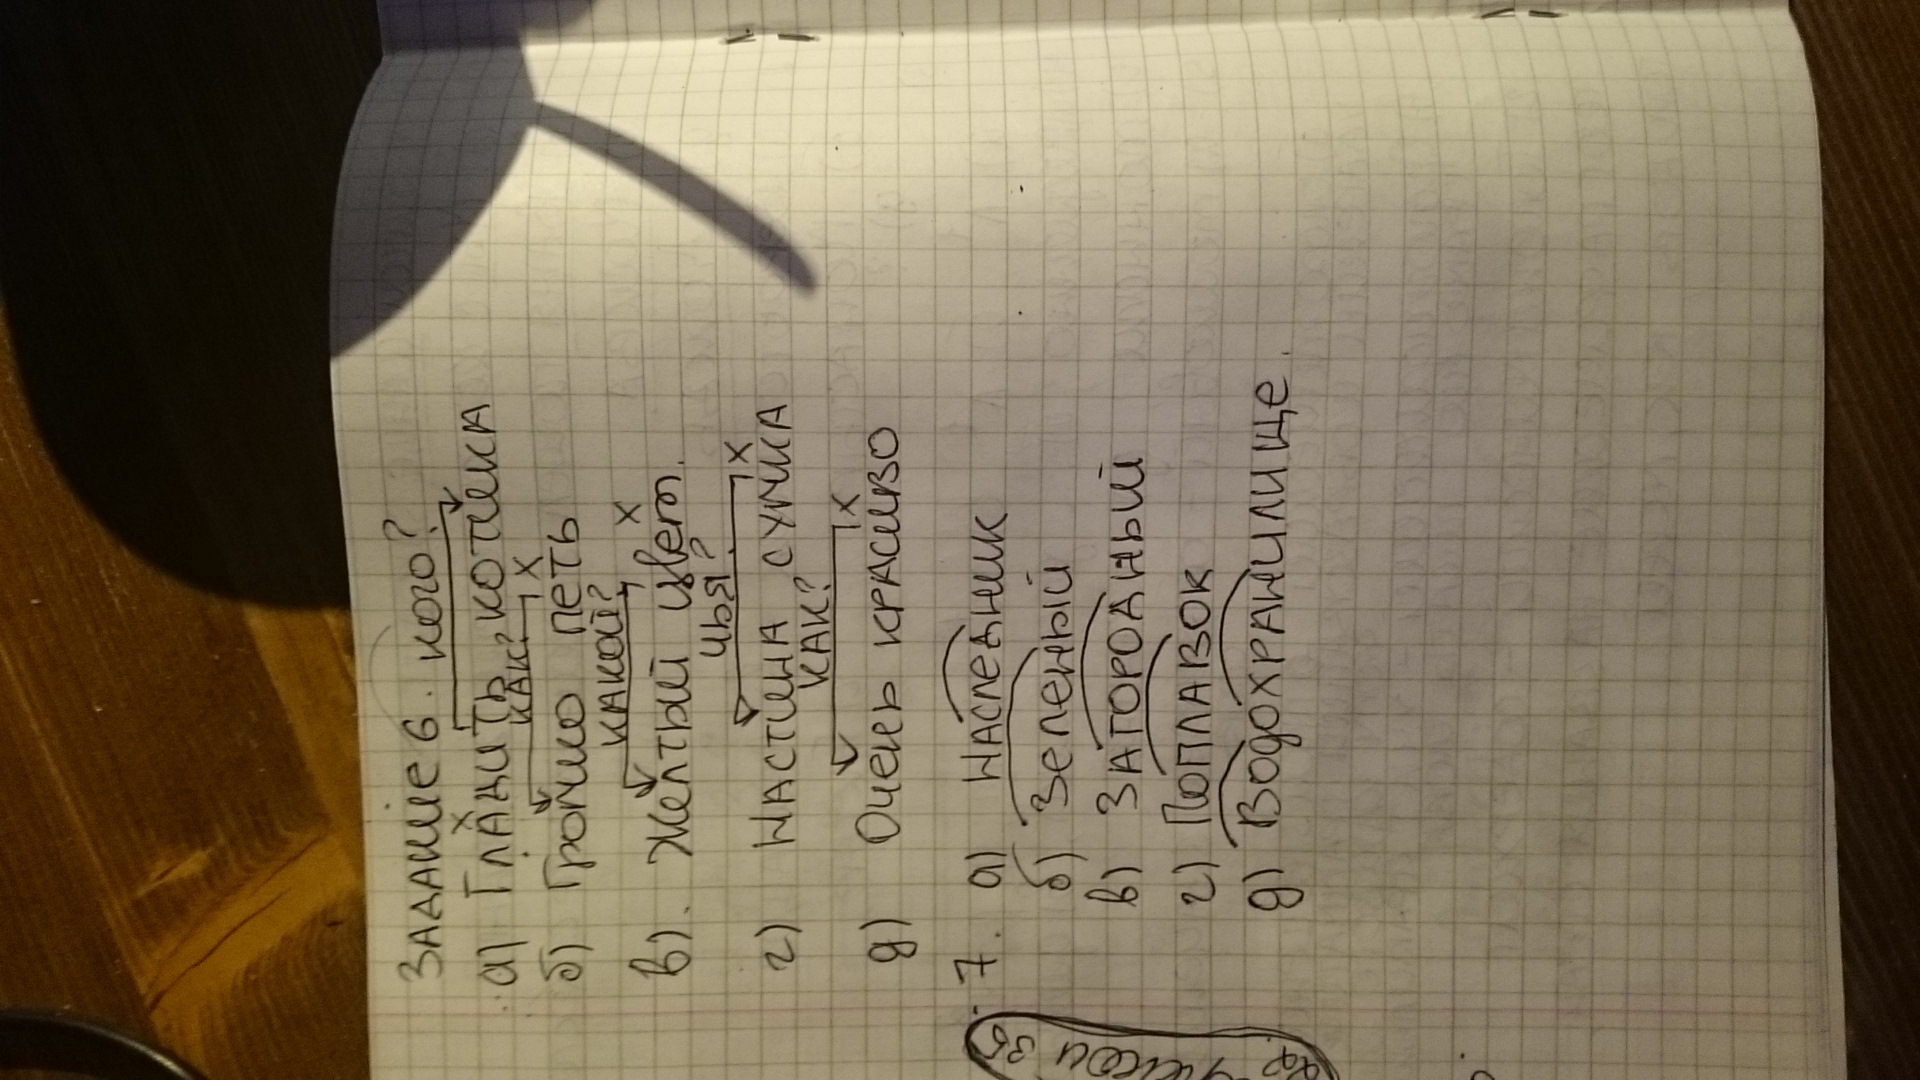 Задание 6. кого?
х
а) Гладить котика
как? х
б) Громко петь
какой? х
в). Желтый цвет.
чья? х
г) Настина сумка
как? х
д) Очень красиво
7. а) Наследник
б) Зеленый
в) Загородный
г) Поплавок
д) Водохранилище.